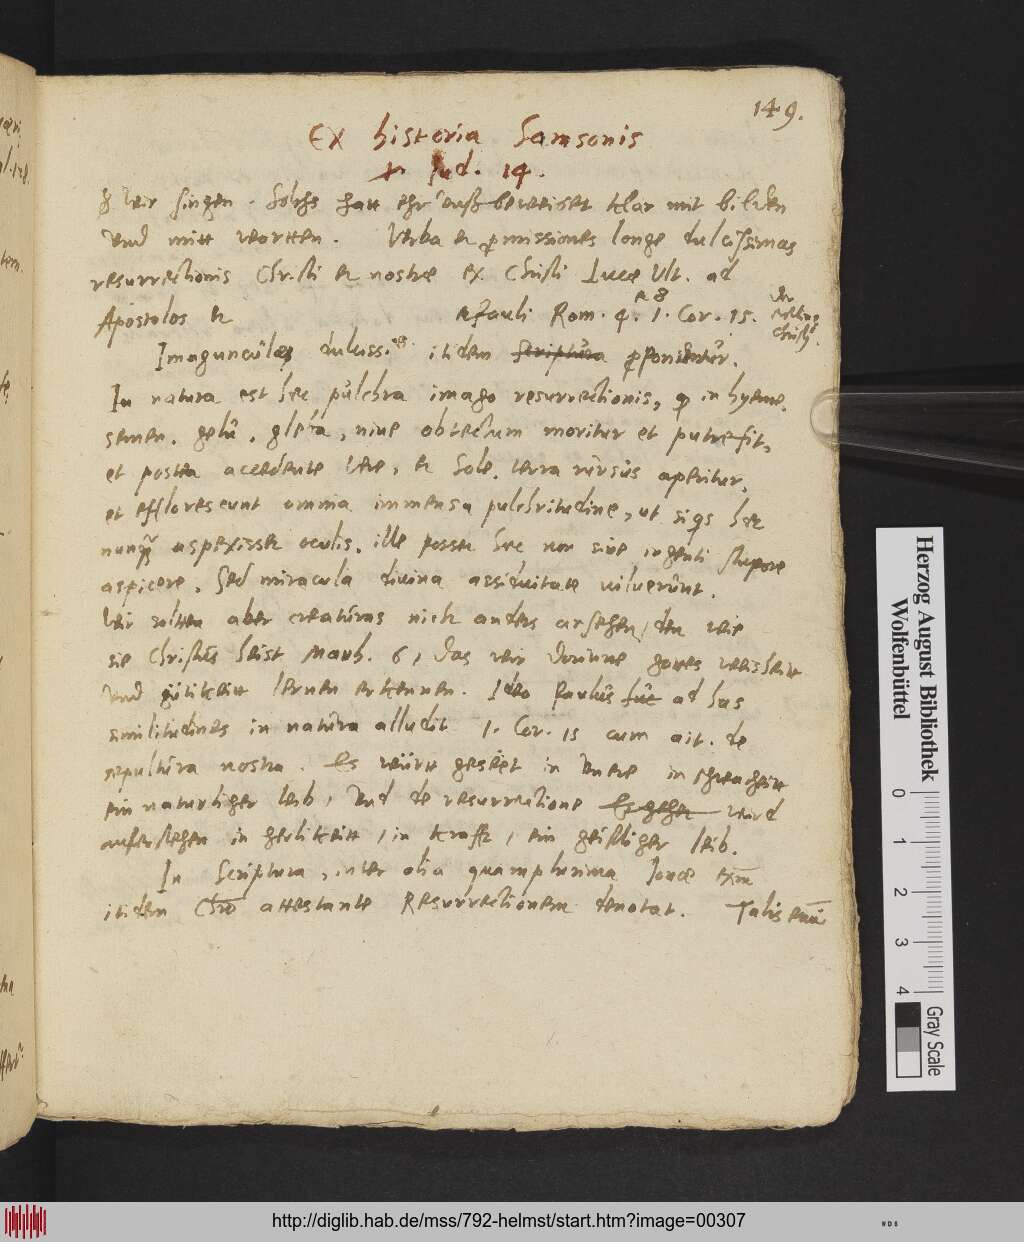 149.
Ex historia Samsonis
Jud. 14.
wir singen. Solchs hatt ehr auß beweiset klar mit bilden
und mitt wortten. Verba et promissiones longe dulcissimas
resurrectionis Christi et nostre ex Christi Luce Ult. ad
Apostolos et Pauli Rom. 4. et 8 1. Cor. 15.
Imagunculas dulciss. itidem scriptura proponuntur.
In natura est hec pulchra imago resurrectionis, in hyeme
semen, gelu, nive obtectum moritur et putrefit,
et postea accedente vere, et Sole, terra rursus aperitur,
et efflorescunt omnia immensa pulchritudine, ut siqs hec
nunqȝ aspexisset oculis, ille posset hec non sine ingenti stupore
aspicere, Sed miracula divina assiduitate viluerunt.
Wir soltten aber creaturas nicht anders ansehen / den wie
sie Christus heist Matth. 6, das wir dorinne gottes weisheitt
und gütikeitt lernen erkennen. Ideo Paulus huc ad has
similitudines in natura alludit 1. Cor. 15 cum ait. de
sepultura nostra. Es württ geseet in Unere in schwacheitt
ein naturlicher leib, Und de resurrectione Es gehet wird
aufferstehen in herlikeitt, in krafft, ein geistlicher leib.
In Scriptura, inter alia quamplurima Jonæ exm
itidem Chro attestante Resurrectionem denotat. Talis enim
Herzog August Bibliothek
Wolfenbüttel
0 1 2 3 4
Gray Scale
http://diglib.hab.de/mss/792-helmst/start.htm?image=00307